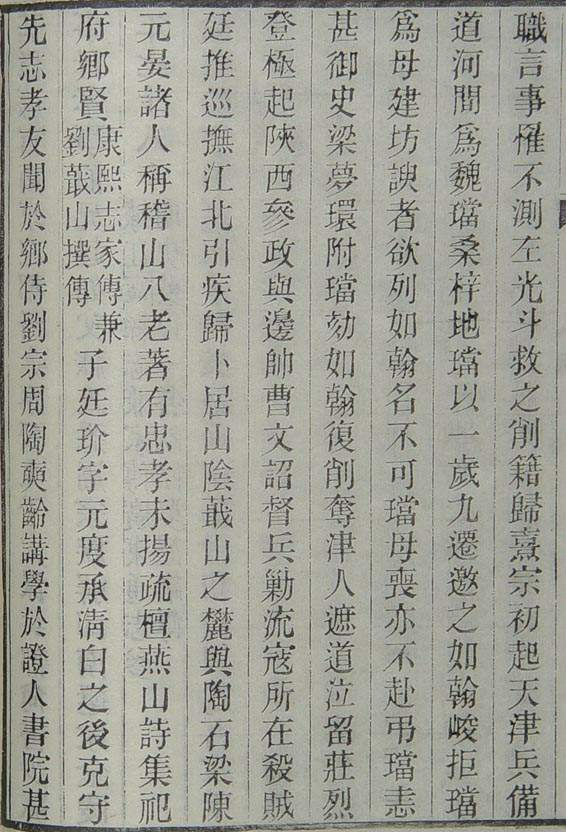 職言事罹不測左光斗救之削籍歸熹宗初起天津兵備
道河間爲魏璫桑梓地璫以一歲九遷邀之如翰峻拒璫
爲母建坊諛者欲列如翰名不可璫母喪亦不赴弔璫恚
甚御史梁夢環附璫劾如翰復削奪津人遮道泣留莊烈
登極起陝西參政與邊帥曹文詔督兵勦流寇所在殺賊
廷推巡撫江北引疾歸卜居山陰蕺山之麓與陶石梁陳
元晏諸人稱稽山八老著有忠孝末揚疏檀燕山詩集祀
府鄉賢康熙志家傳兼劉蕺山撰傳子廷玠字元度承淸白之後克守
先志孝友聞於鄉侍劉宗周陶奭齡講學於證人書院甚